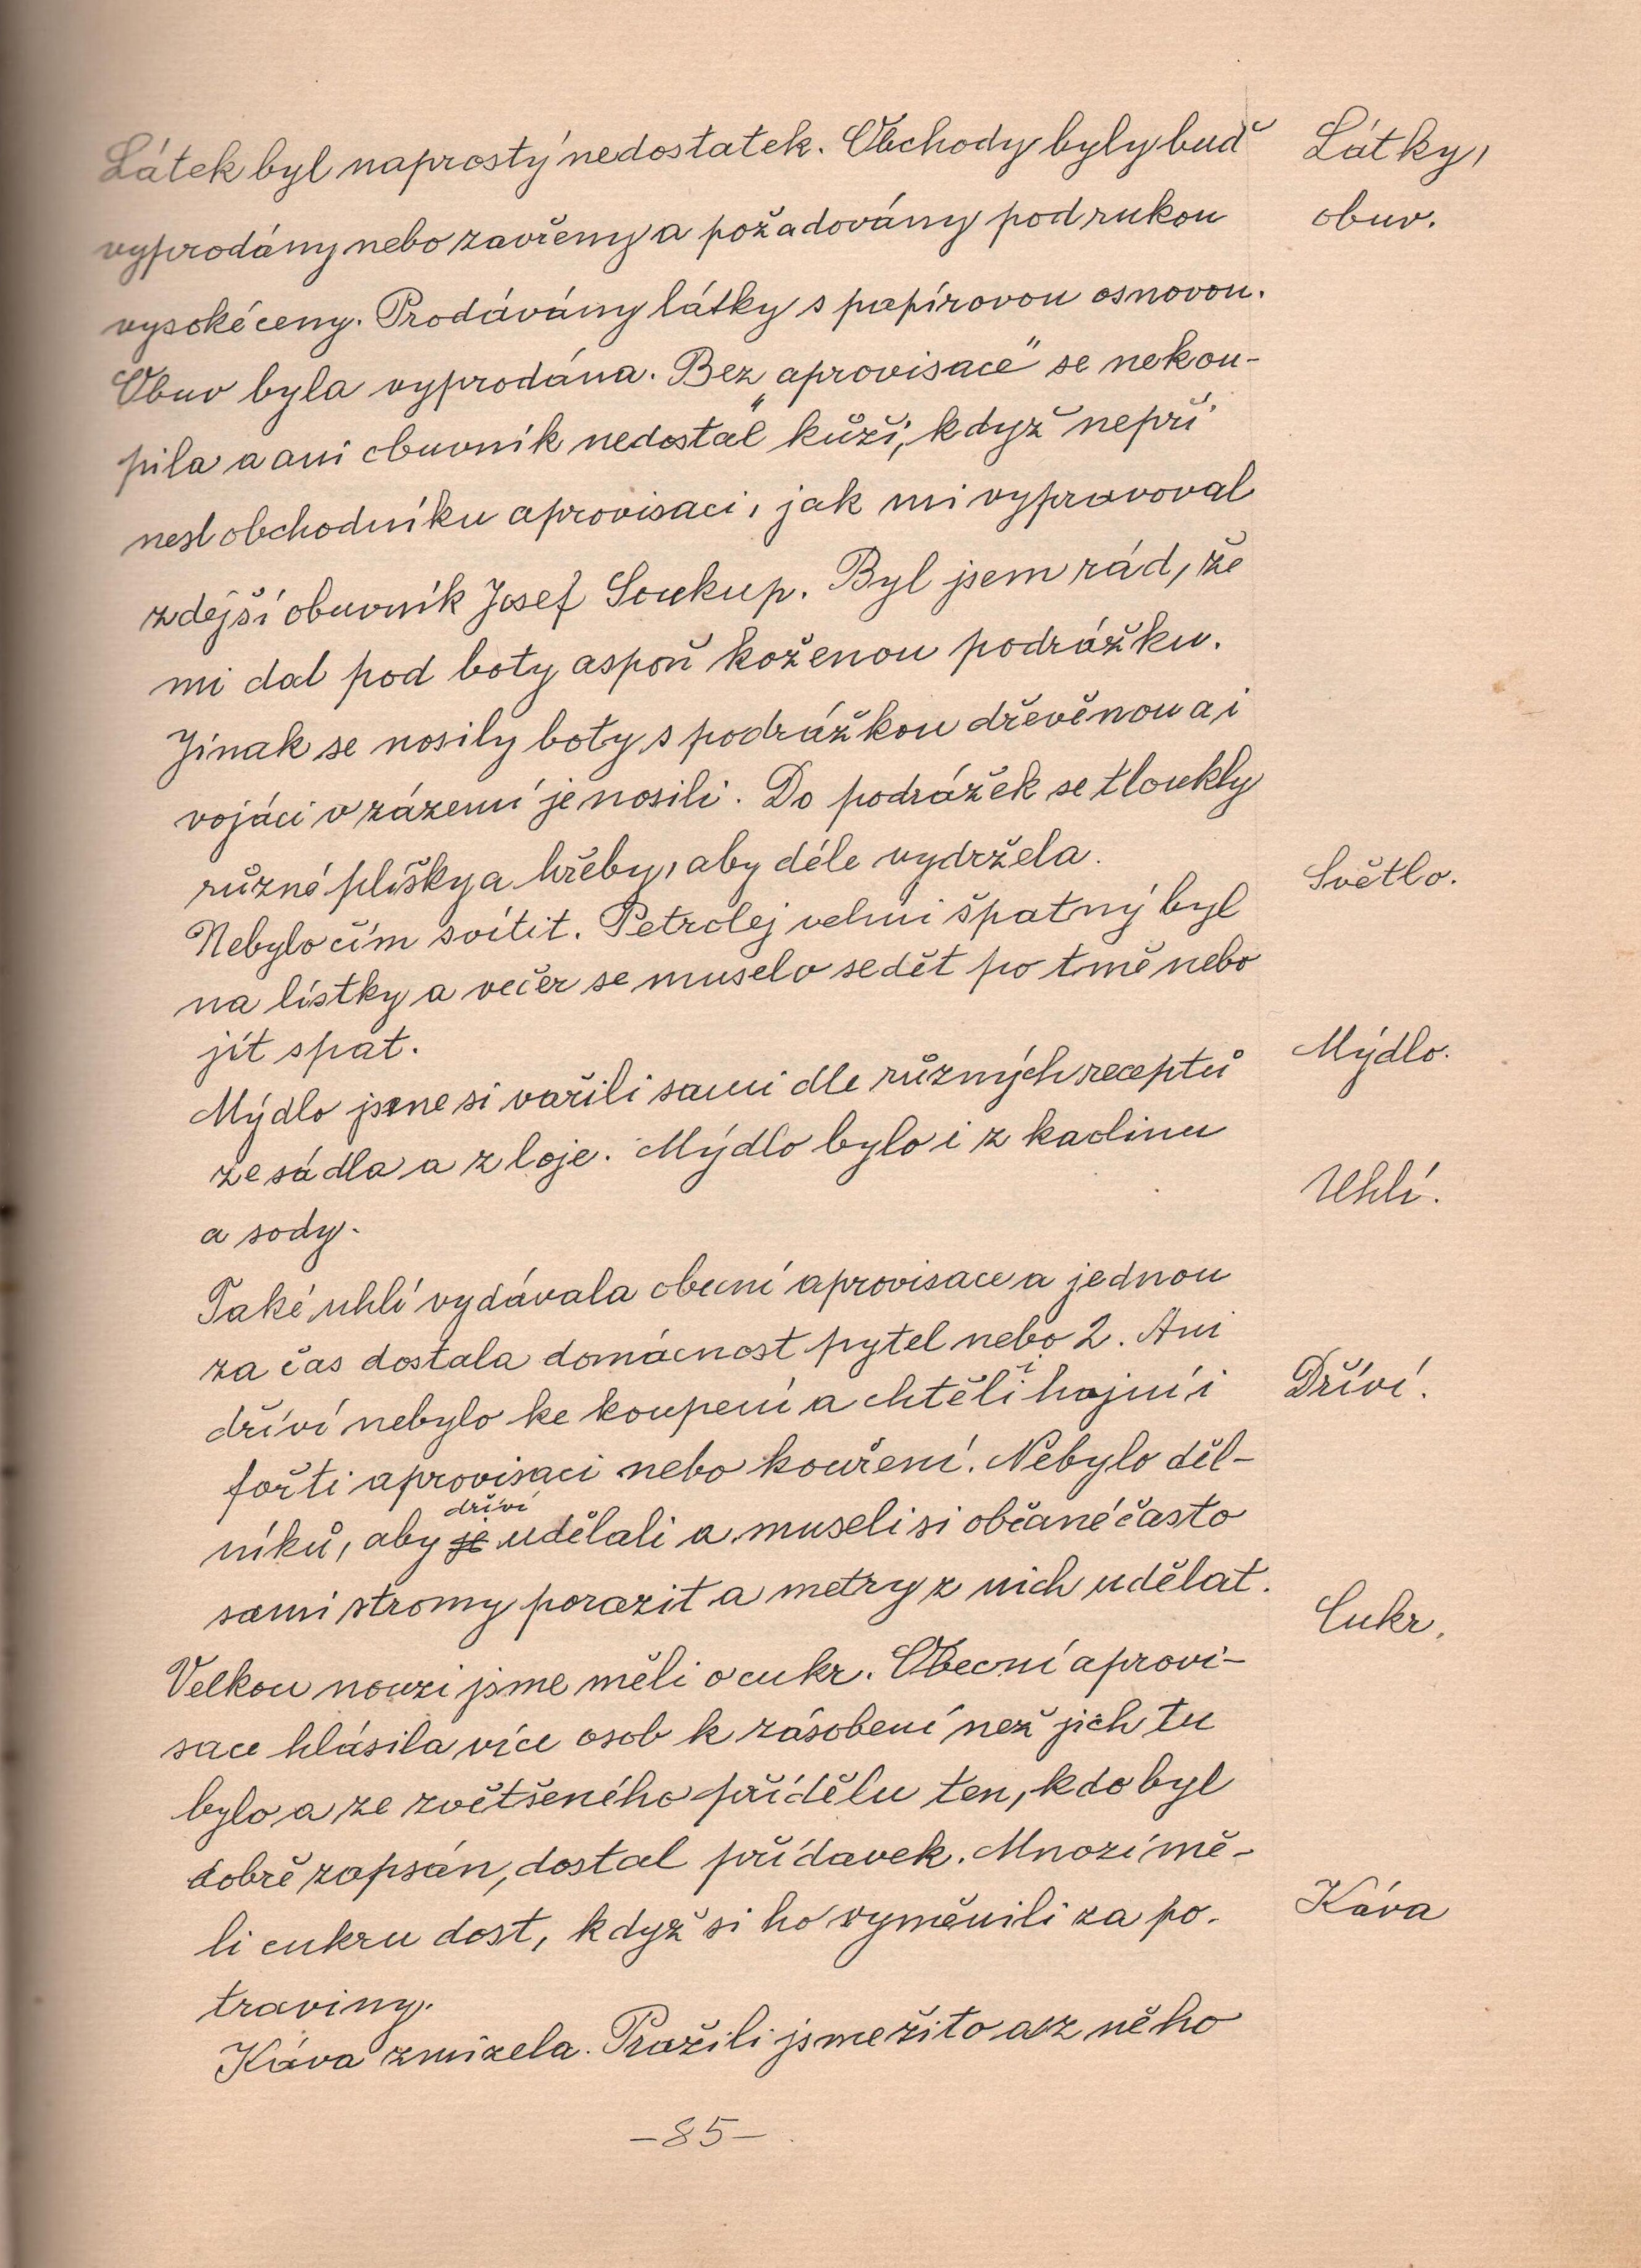 Látek byl naprostý nedostatek. Obchody byly buď
Látky,
vyprodány nebo zavřeny a požadovány pod rukou
obuv.
vysoké ceny. Prodávány látky s papírovou osnovou.
Obuv byla vyprodána. Bez „aprovisace" se nekou-
pila a ani obuvník nedostal kůži, když nepři-
nesl obchodníku aprovisaci, jak mi vypravoval
zdejší obuvník Josef Soukup. Byl jsem rád, že
mi dal pod boty aspoň koženou podrážku.
Jinak se nosily boty s podrážkou dřevěnou a i
vojáci v zázemí je nosili. Do podrážek se tloukly
různé plíšky a hřeby, aby déle vydržela.
Světlo.
Nebylo čím svítit. Petrolej velmi špatný byl
na lístky a večer se muselo sedět po tmě nebo
jít spat.
Mýdlo.
Mýdlo jsme si vařili sami dle různých receptů
ze sádla a z loje. Mýdlo bylo i z kaolinu
a sody.
Uhlí.
Také uhlí vydávala obecní aprovisace a jednou
za čas dostala domácnost pytel nebo 2. Ani
dříví nebylo ke koupení a chtěli i hajní i
Dříví.
fořti aprovisaci nebo kouření. Nebylo děl-
dříví
níků, aby je udělali a museli si občané často
sami stromy porazit a metry z nich udělat.
Cukr.
Velkou nouzi jsme měli o cukr. Obecní aprovi-
sace hlásila více osob k zásobení než jich tu
bylo a ze zvětšeného přídělu ten, kdo byl
dobře zapsán, dostal přídavek. Mnozí mě-
li cukru dost, když si ho vyměnili za po-
Káva
traviny.
Káva zmizela. Pražili jsme žito a z něho
-85-